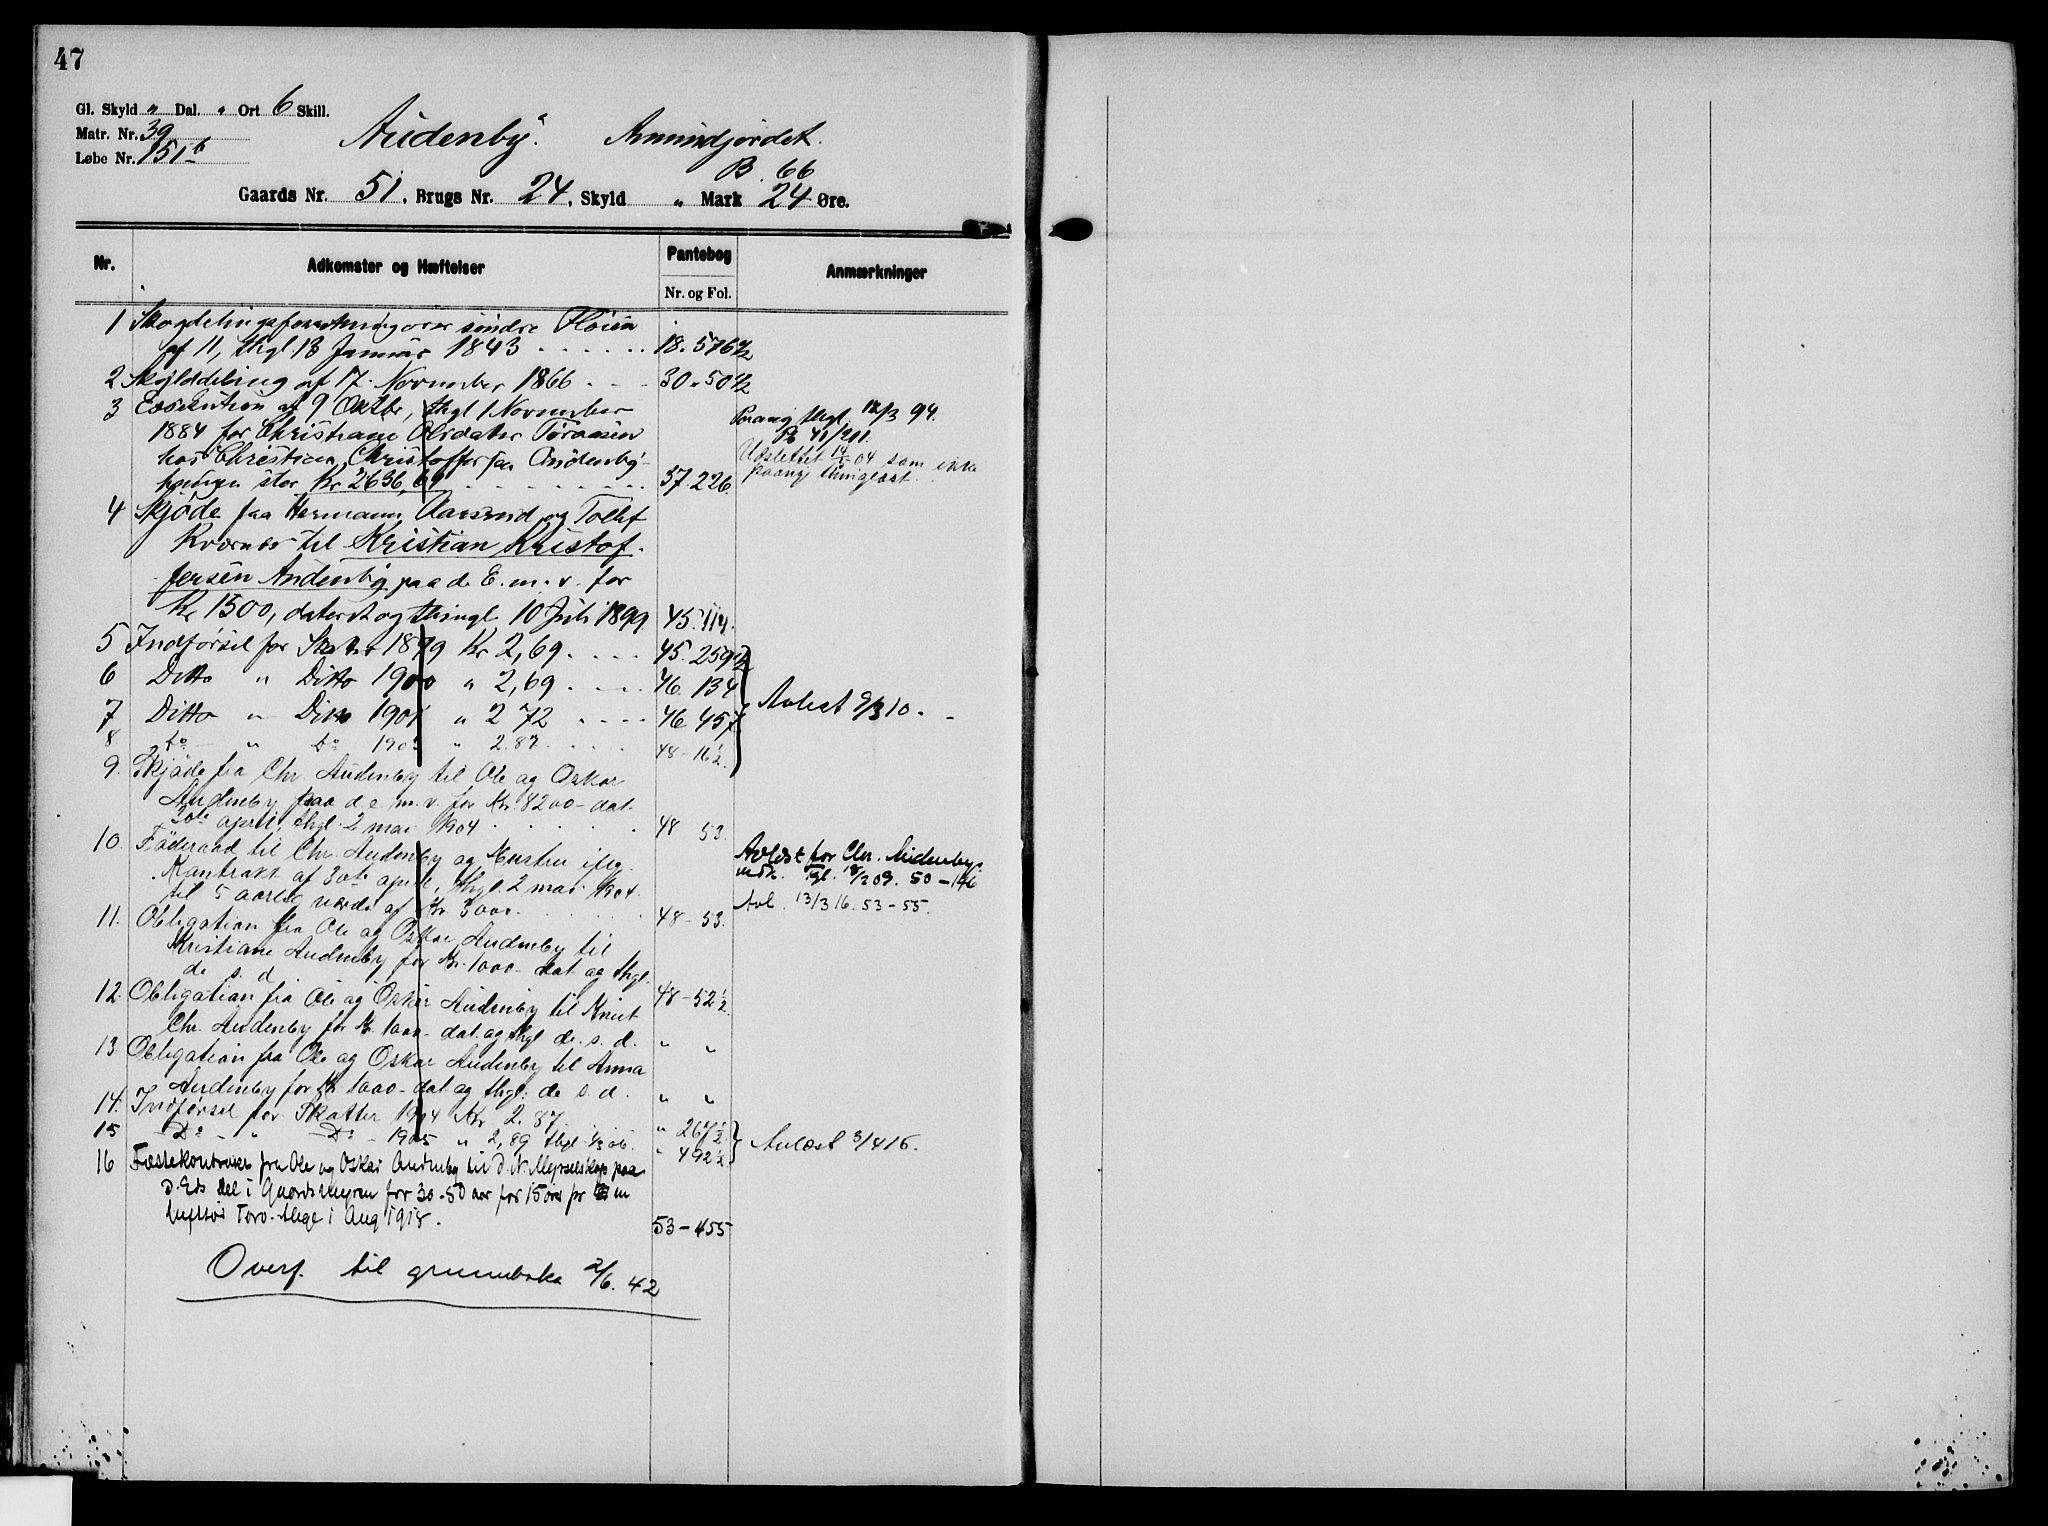 47
Gl. Skyld " Dal. " Ort 6 Skill.
Matr. Nr. 39
Løbe Nr. 151 b
Audenby. Amundjordet.
B. 66
Gaards Nr. 51, Brugs Nr. 24, Skyld " Mark 24 Øre.
Nr. Adkomster og Hæftelser Pantebog Anmærkninger
Nr. og Fol.
1 Skogdelingsforretning over søndre
af 11, thgl. 13 Januar 1843 18. 576 1/2
2 Skylddeling af 17. November 1866 30. 50 1/2
3 Execution af 9 Oktbr, thgl 1 November Paaanj thgl 12/3 94.
1884 for Christiane Olsdatter Pb 41/211.
hos Christian Christoffersen Audenby Udslettet 04 som ikke
stor Kr 2636,69 37. 226. paaanj thinglæst.
4 Skjøde fra Hermann og Tollef
Kværnæs til Kristian Kristof-
fersen Audenby paa de E. m. v. for
Kr 1500, dateret og thingl 10 Juli 1899 45. 114.
5 Indførsel for Skatter 1899 Kr 2,69 45. 259 1/2
6 Ditto " Ditto 1900 " 2,69 46. 134
7 Ditto " Ditto 1901 " 2 72 46 457 Avlæst 9/3 10.
8 do " do 190 " 2.87 48 - 16 1/2.
9. Skjøde fra Chr Audenby til Ole og Oskar
Audenby paa d. e. m. v. for Kr. 8200 - dat.
30te april, thgl. 2 mai 1904 48 53.
10. Föderaad til Chr. Audenby og Hustru iflg. Avlæst for Chr. Audenbys
Kontrakt af 30te april, thgl. 2 mai 1904. vedk. Tgl. 09. 50 - 146
til 5 aarlig værdi af Kr 3000. 48 - 53. Avl. 13/3 16. 53 - 55.
11. Obligation fra Ole og Oskar Audenby til
Kristiane Audenby for Kr. 1000 - dat og thgl.
de s. d 48 - 52 1/2.
12. Obligation fra Ole og Oskar Audenby til Knut
Chr. Audenby for Kr. 1000 - dat. og thgl de. s. d. " "
13. Obligation fra Ole og Oskar Audenby til Anna
Audenby for Kr 1000 - dat og thgl. de s. d. " "
14. Indførsel for Skatter 1904 Kr. 2.87 " 267 1/2
15 Do - " - Do - 1905 " 2,89 thgl. 1/3 06. " 492 1/2 Avlæst 3/4 16.
16 Fæstekontrakt fra Ole og Oskar Audenby til D. N. Myrselskap paa
D. Eds del i Gaardsmyren for 30-50 aar for 15 øre pr m
lufttør Torv. thgl i Aug 1918. 53 - 455
Overf. til grunnboka 2/6. 42